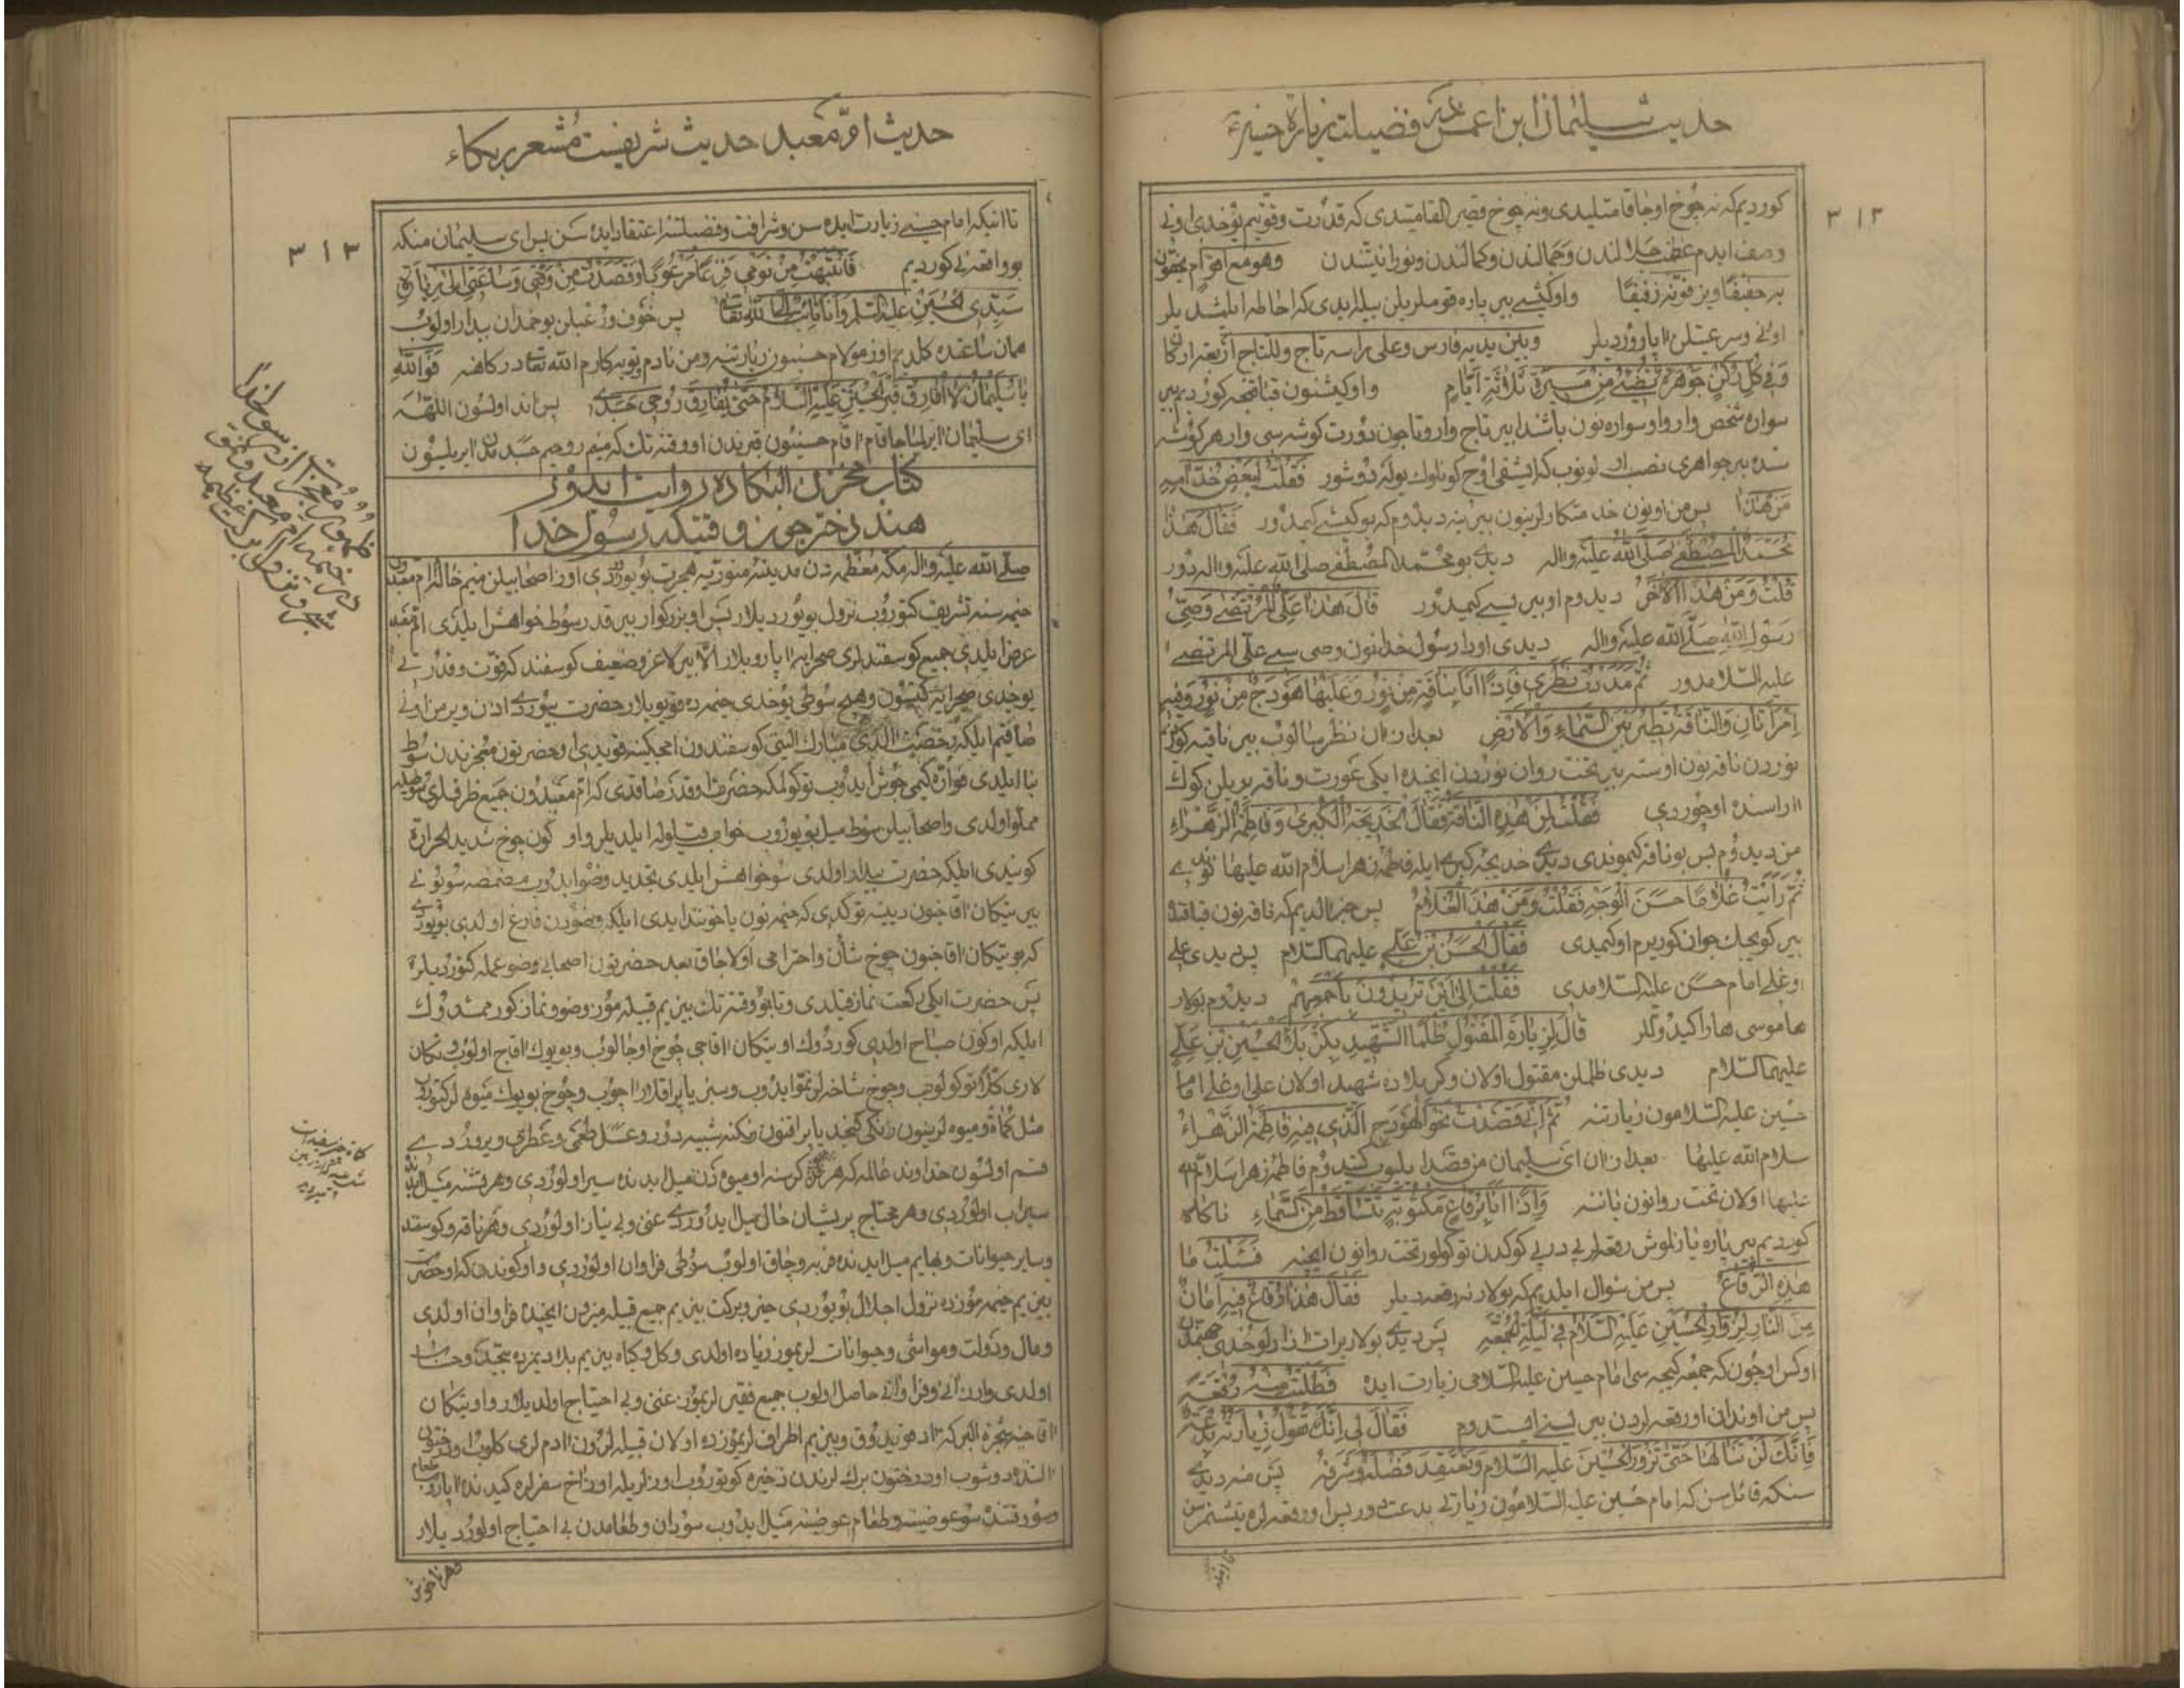 حدیث سلیمان ابن اعمش فضیلت زیارة حسین
٣١٢
کوردیم که نه چوخ اوجا قامتلیدی ونه چوخ قصیر القامتیدی که قدرت وقوتیم یوخدی اونی
وصف ایدم عظم جلالندن وجمالندن وکمالندن ونورانیتندن وهو مع اقوام یحفون
به حفیفا ویزفونه زفیفا واوکیشی بیر پاره قوملریلن بیله ایدی که احاطه ایلیشدیلر
اونی وسرعتیلن آپاروردیلر وبین یدیه فارس وعلی راسه تاج وللتاج اربعة ارکان
وفی کل رکن جوهرة تضیئ من مسیرة ثلاثة ایام واوکیشنون قباقنجه کوردیم بیر
سواره شخص وار واو سواره نون باشندا بیر تاج وار وتاجون دورت کوشه سی وار هر کوشه
سنده بیر جواهری نصب اولونوب که ایشقی اوج کونلوک یوله دوشور فقلت لبعض خدامه
من هذا پس من اونون خدمتکارلرینون بیرینه دیدوم که بو کیشی کیمدور فقال هذا
محمد المصطفی صلی الله علیه واله دیدی بو محمد المصطفی صلی الله علیه واله دور
قلت ومن هذا الاخر دیدوم او بیریسی کیمدور قال هذا علی المرتضی وصی
رسول الله صلی الله علیه واله دیدی اودا رسول خدانون وصی سی علی المرتضی
علیه السلامدور ثم مددت نظری فاذا انا بناقة من نور وعلیها هودج من نور وفیه
امراتان والناقة تطیر بین السماء والارض بعد ازان نظر سالوب بیر ناقیه کوردوم
نوردن ناقه نون اوسته بیر تخت روان نوردن ایچنده ایکی عورت وناقه یریلن کوک
آراسنده اوچوردی فقلت لمن هذه الناقة فقال لخدیجة الکبری وفاطمة الزهراء
من دیدوم بس بو ناقه کیموندی دیدی خدیجه کبری ایله فاطمه زهرا سلام الله علیها نوندی
ثم رایت غلاما حسن الوجه فقلت ومن هذا الغلام پس خبر آلدیم که ناقه نون قباقنده
بیر کویچک جوان کوریرم او کیمدی فقال الحسن بن علی علیهما السلام پس دیدی علی
اوغلی امام حسن علیه السلامدی فقلت الی این تریدون باجمعهم دیدوم بولار
هاموسی هارا کیدوللر قال لزیارة المقتول ظلما الشهید بکربلا الحسین بن علی
علیهما السلام دیدی ظلملن مقتول اولان وکربلاده شهید اولان علی اوغلی امام
حسین علیه السلامون زیارتنه ثم انی قصدت نحو الهودج الذی فیه فاطمة الزهراء
سلام الله علیها بعد ازان ای سلیمان من قصد ایلیوب کیتدوم فاطمه زهرا سلام الله
علیها اولان تخت روانون یاننه واذا انا برقاع مکتوبة تتساقط من السماء ناکاه
کوردیم بیر پاره یازلوش رقعه لر پی در پی کوکدن توکولور تخت روانون ایچنه فسئلت ما
هذه الرقاع پس من سوال ایلدیم که بولار نه رقعه دیلر فقال هذه رقاع فیها امان
من النار لزوار الحسین علیه السلام فی لیلة الجمعة پس دیدی بولار برات آزادلوخدی جهنمدن
اوکس اوچون که جمعه کیجه سی امام حسین علیه السلامی زیارت ایده فطلبت منه رقعة
پس من اوندان او رقعه لردن بیریسنی ایستدوم فقال لی انک تقول زیارته بدعة
فانک لن تنالها حتی تزور الحسین علیه السلام وتعتقد فضله وشرفه پس منه دیدی
سنکه قائلسن که امام حسین علیه السلامون زیارتی بدعتدور پس او رقعه لره یتیشمزسن
حدیث ام معبد حدیث شریفیست مشعر بر بکاء
٣١٣
تا انیکه امام حسینی زیارت ایده سن وشرافت وفضیلتنه اعتقاد ایده سن پس ای سلیمان منکه
بو واقعه نی کوردیم فانتبهت من نومی فزعا مرعوبا وقصدت من وقتی وساعتی الی زیارة
سیدی الحسین علیه السلام وانا تائب الی الله تعالی پس خوف ورعبلن یوخمدان بیدار اولوب
همان ساعتده کلدیم اوز مولام حسینون زیارتنه ومن نادم وتوبه کارم الله تعالی درکاهنه فوالله
یا سلیمان لا افارق قبر الحسین علیه السلام حتی یفارق روحی جسدی پس اند اولسون اللهه
ای سلیمان آیریلماجاقام آقام حسینون قبرندن او وقته تک که منیم روحیم جسدمدن آیریلسون
کتاب مخزن البکاده روایت ایدور
هند دختر جون وقتیکه رسول خدا
صلی الله علیه واله مکه معظمه دن مدینه منوریه هجرت بویوردی اوز اصحابیلن منیم خالم ام معبدون
خیمه سنه تشریف کتوروب نزول بویوردیلار پس او بزرکوار بیر قدر سوط خواهش ایلدی ام معبد
عرض ایلدی جمیع کوسفندلری صحرایه آپاروبلار الا بیر لاغر وضعیف کوسفند که قوت وقدرتی
یوخدی صحرایه کیتسون وهیچ سوطی یوخدی خیمه ده قویوبلار حضرت بیوردی اذن ویر من اونی
صاقیم ایلیکه رخصت آلدی مبارک الینی کوسفندون امجکینه قویدی او حضرتون معجزندن سوط
بنا ایلدی فواره کیمی جوش ایدوب توکولمکه حضرت اوقدر صاقدی که ام معبدون جمیع ظرفلری سوطیله
مملو اولدی واصحابیلن سوط میل بویوروب خواب قیلوله ایلدیلر واو کون چوخ شدید الحرارة
کونیدی ایلیکه حضرت بیدار اولدی سو خواهش ایلدی تجدید وضو ایدوب مضمضه سویونی
بیر تیکان آقاجنون دیبنه توکدی که خیمه نون یاخوننده ایدی ایلیکه وضودن فارغ اولدی بویوردی
که بو تیکان آقاجنون چوخ شأن واحترامی اولاجاق بعد حضرتون اصحابی وضو عمله کتوردیلر
پس حضرت ایکی رکعت نماز قیلدی وتا بو وقته تک بیزیم قبیله موز وضو ونماز کورممشدوک
ایلیکه اوکون صباح اولدی کوردوک او تیکان آقاجی چوخ اوجالوب وبویوک آقاج اولوب وتیکان
لاری کلا توکولوب وچوخ شاخه لر نمو ایدوب وسبز یاپراقلار آچوب وچوخ بویوک میوه لر کتوروب
مثل کماة ومیوه لرینون رنکی کنجد یاپراقنون رنکنه شبیه دور وعسل طعمی وعطری ویروردی
قسم اولسون خداوند عالمه که هر کرسنه او میوه دن میل ایدنده سیر اولوردی وهر تشنه میل ایدنده
سیراب اولوردی وهر محتاج پریشان حال میل ایدوردی غنی وبی نیاز اولوردی وهر ناقه وکوسفند
وسایر حیوانات وبهایم میل ایدنده فربه وچاق اولوب سوطی فراوان اولوردی واو کوندن که او حضرت
بیزیم خیمه موزده نزول اجلال بویوردی خیر وبرکت بیزیم جمیع قبیله میزون ایچنده فراوان اولدی
ومال ودولت ومواشی وحیوانات لریموز زیاده اولدی وکل وکیاه بیزیم بلادیمزده بیحد وحساب
اولدی وارزانی وفراوانی حاصل اولوب جمیع فقیرلریموز غنی وبی احتیاج اولدیلار واو تیکان
آقاجنه شجره البرکه آد قویدوق وبیزیم اطراف لریموزده اولان قبیله لرون آدم لری کلوب او درختون
آلتنده دوشوب او درختون برک لرندن ذخیره کوتوروب اوزلریله اوزاخ سفرلره کیدنده آپاروب طعام
وصورتنده سو عوضینه وطعام عوضینه میل ایدوب سودان وطعامدن بی احتیاج اولوردیلار